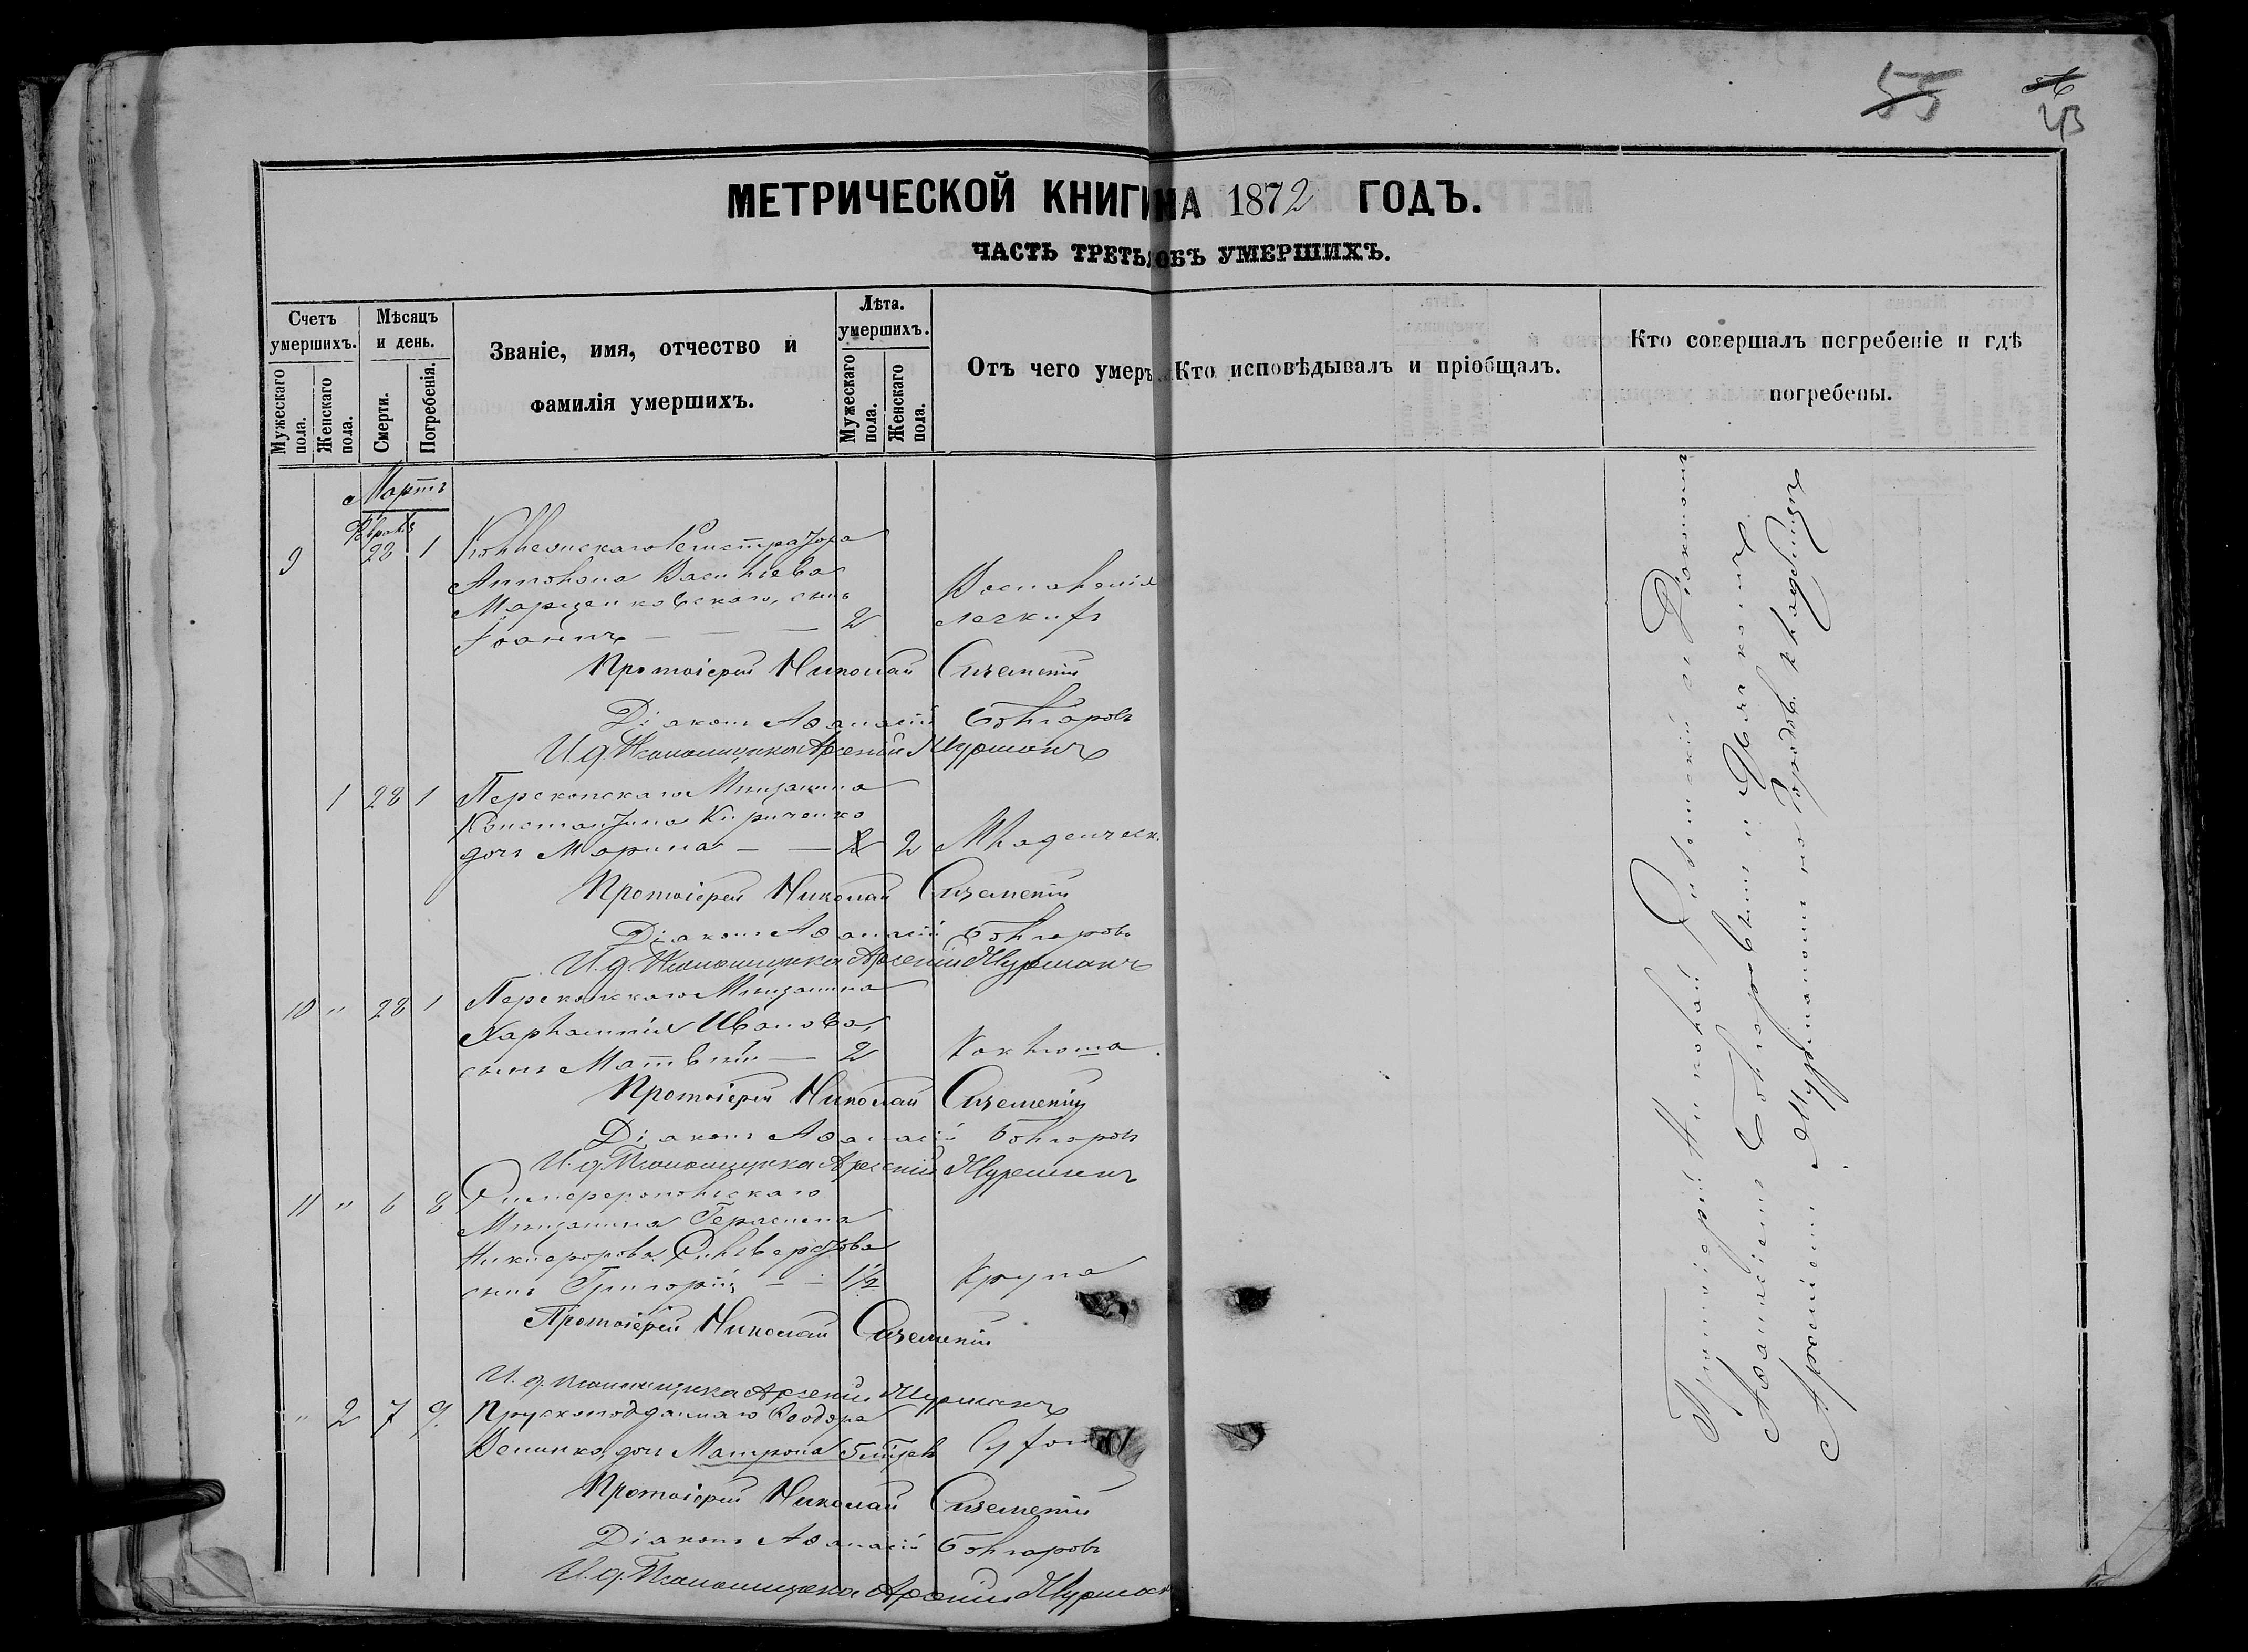 55
43
МЕТРИЧЕСКОЙ КНИГИ НА 1872 ГОДЪ.
ЧАСТЬ ТРЕТЬЯ ОБЪ УМЕРШИХЪ.
Счетъ умершихъ.
Мужескаго пола.
Женскаго пола.
Мѣсяцъ и день.
Смерти.
Погребенія.
Званіе, имя, отчество и
фамилія умершихъ.
Лѣта. умершихъ.
Мужескаго пола.
Женскаго пола.
Отъ чего умеръ
Кто исповѣдывалъ и пріобщалъ.
Кто совершалъ погребеніе и гдѣ
погребены.
Мартъ
9 28 1 Коллежскаго Регистратора
Васильева
сынъ Воспаленія
Іоаннъ — — — 2 легкихъ
Протоіерей Николай
Діаконъ Аѳанасій Болгаровъ
И. д. Псаломщика Арсеній Мурманъ
1 28 1 Перекопскаго Мѣщанина
Константина Кириченко
дочь Марина — — 2 2 Младенческ.
Протоіерей Николай
Діаконъ Аѳанасій Болгаровъ
И. д. Псаломщика Арсеній Мурманъ
10 " 28 1 Перекопскаго Мѣщанина
Харлампія Иванова,
сынъ Матвѣй — 2 Коклюша.
Протоіерей Николай
Діаконъ Аѳанасій Болгаровъ
И. д. Псаломщика Арсеній Мурманъ
11 " 6 8 Симферопольскаго
Мѣщанина Герасима
Никифорова Сильверстова
сынъ Григорій — — 1½ Крупа
Протоіерей Николай
И. д. Псаломщика Арсеній Мурманъ
" 2 7 9. Прусскоподданнаго Ѳеодора
дочь Матрона 5
Протоіерей Николай
Діаконъ Аѳанасій Болгаровъ
И. д. Псаломщика Арсеній Мурманъ
Протоіерей Николай съ Діакономъ
Аѳанасіемъ Болгаровымъ и
Арсеніемъ Мурманомъ на Городск. кладбищѣ